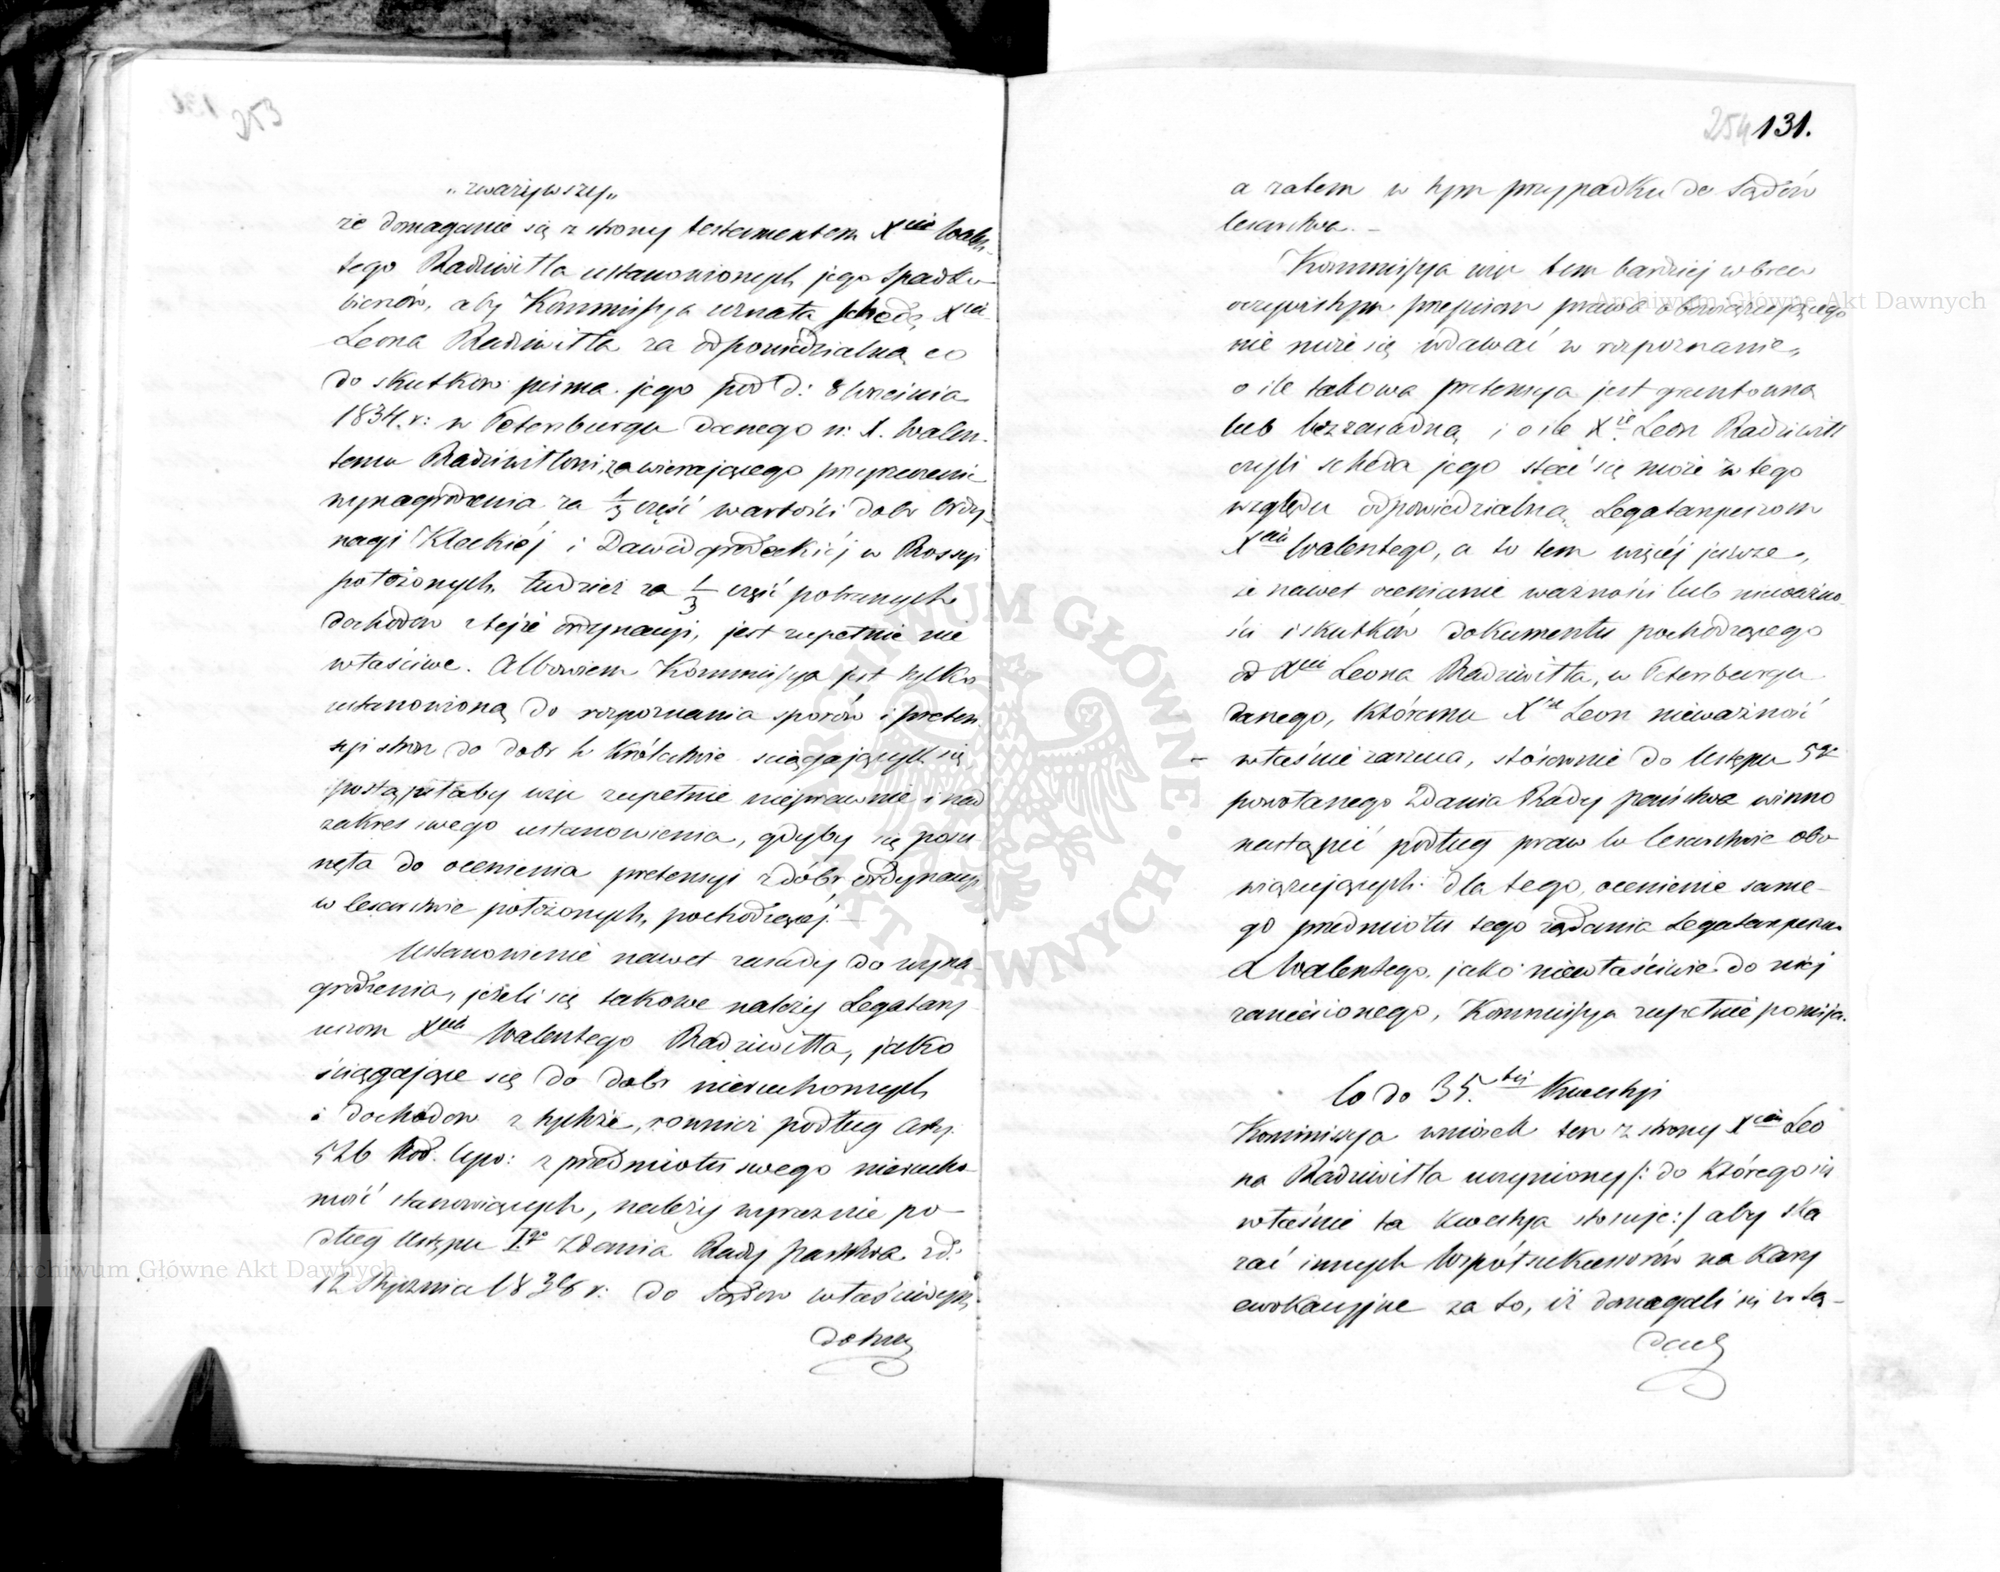 253
„zważywszy„
że domaganie się z strony testamentem Xcia Walen-
tego Radziwiłła ustanowionych jego Spadko
bierców, aby Kommissya uznała schedę Xcia
Leona Radziwiłła za odpowiedzialną co
do skutków pisma jego pod d: 8 Września
1834 r: w Petersburgu danego n: X. Walen-
temu Radziwiłłowi, zawierającego przyrzeczenie
wynagrodzenia za 1/3 część wartości dobr Ordy-
nacyi Kleckiéj i Dawidgrodeckiéj w Rossyi
położonych, tudzież za 1/3 część pobranych
dochodów z tejże ordynacyi, jest zupełnie nie
właściwe. Albowiem Kommissya jest tylko
ustanowioną do rozpoznania sporów i preten-
syi stron do dobr w Królestwie ściągających się,
postąpiłaby więc zupełnie nieprawnie i nad
zakres swego ustanowienia, gdyby się posu
nęła do ocenienia pretensyi z dóbr ordynacyi
w Cesarstwie położonych, pochodzącéj.—
Ustanowienie nawet zasady do wyna-
grodzenia, jeżeli się takowe należy Legatary
uszom Xcia Walentego Radziwiłła, jako
ściągające się do dobr nieruchomych
i dochodów z tychże, również podług Arty.
526 Kod. Cyw: z przedmiotu swego nierucho-
mość stanowiących, należy wyraznie po-
dług Ustępu Igo Zdania Rady Państwa zd:
12 Stycznia 1836 r: do Sądów właściwych
dobrze
254 131.
a zatem w tym przypadku do Sądów
Cesarstwa.—
Kommissya więc tem bardziej wbrew
oczywistym przepisom prawa obowiązującego
nie może się wdawać w rozpoznanie,
o ile takowa pretensya jest gruntowną
lub bezzasadną, i o ile Xże Leon Radziwiłł
czyli scheda jego stać się może w tego
względu odpowiedzialną Legataryuszom
Xcia Walentego, a to tem więcéj jeszcze,
że nawet ocenianie ważności lub nieważno-
ści i skutków dokumentu pochodzącego
od Xcia Leona Radziwiłła, w Petersburgu
danego, któremu Xże Leon nieważność
właśnie zarzuca, stósownie do Ustępu 5go
powołanego Zdania Rady państwa winno
nastąpić podług praw w Cesarstwie obo
wiązujących: dla tego, ocenienie same-
go przedmiotu tego żądania Legataryuszów
X Walentego, jako niewłaściwie do niej
zaniesionego, Kommissya zupełnie pomija.
Co do 35.tej Kwestyi
Kommissya wniosek ten z strony Xcia Leo
na Radziwiłła uczyniony /: do którego się
właśnie ta kwestya stosuje:/ aby ska
zać innych Współsukcessorów na kary
ewokacyjne za to, iż domagali się w Są-
dach